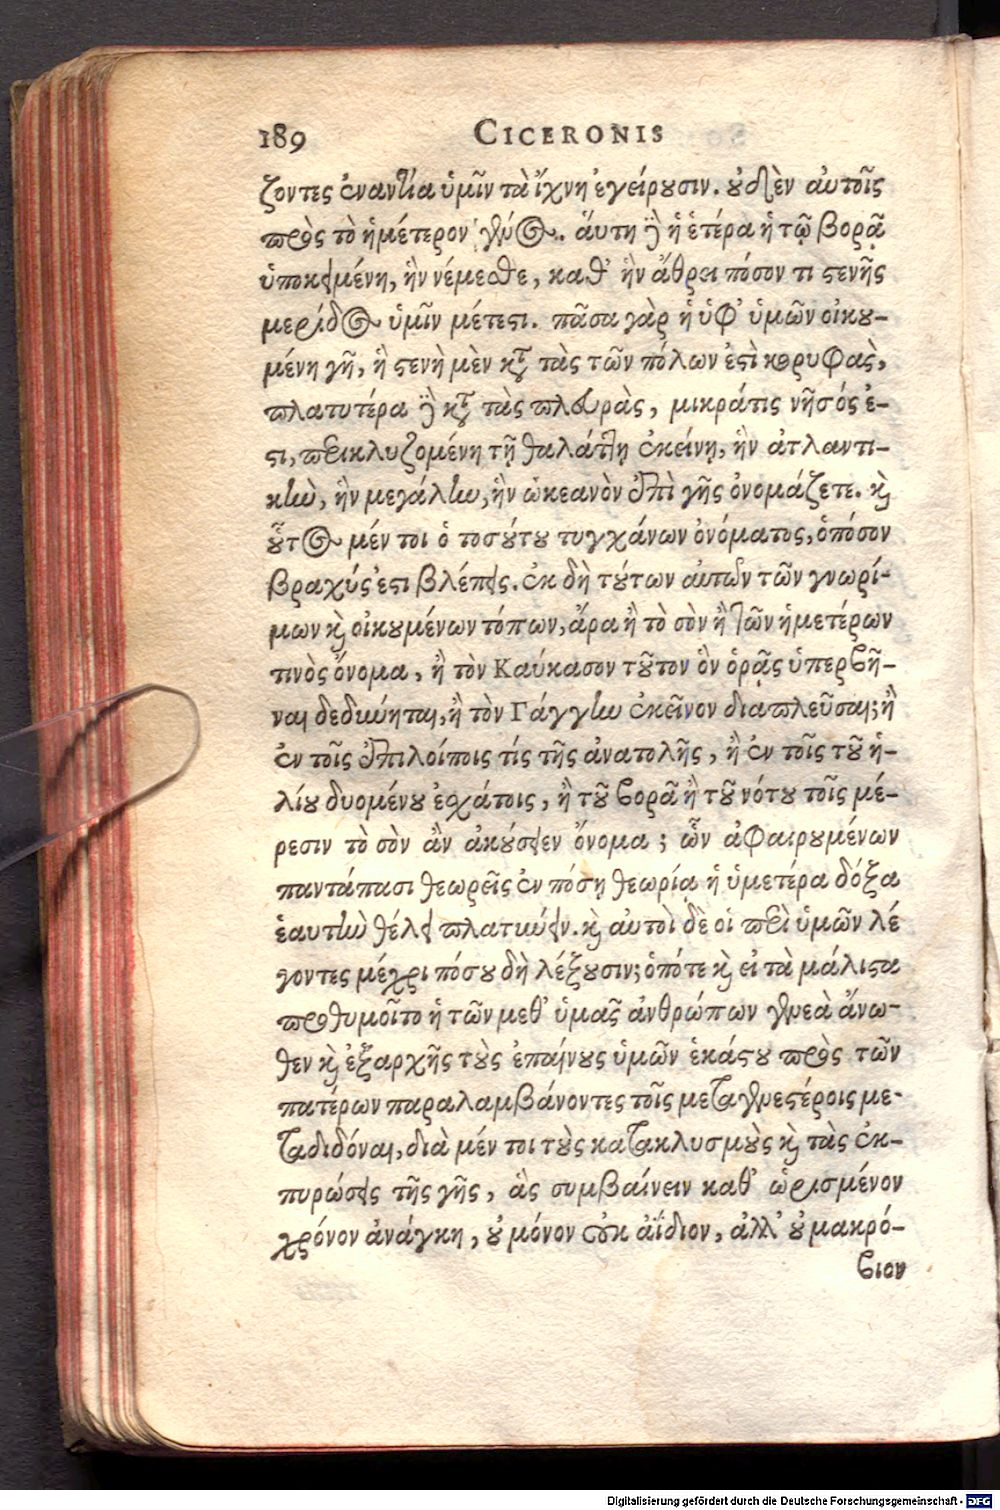 189 CICERONIS
ζοντες ἐναντία ὑμῖν τὰ ἴχνη ἐγείρουσιν. οὐδὲν αὐτοῖς
πρὸς τὸ ἡμέτερον γένος. αὕτη δὲ ἡ ἑτέρα ἡ τῷ βορᾷ
ὑποκειμένη, ἣν νέμεσθε, καθ' ἣν ἄθρει πόσον τι στενῆς
μερίδος ὑμῖν μέτεστι. πᾶσα γὰρ ἡ ὑφ' ὑμῶν οἰκου-
μένη γῆ, ἣ στενὴ μὲν κατὰ τὰς τῶν πόλων ἐστὶ κορυφὰς,
πλατυτέρα δὲ κατὰ τὰς πλευρὰς, μικράτις νῆσός ἐ-
στι, περικλυζομένη τῇ θαλάττῃ ἐκείνῃ, ἣν ἀτλαντι-
κὴν, ἣν μεγάλην, ἣν ὠκεανὸν ἐπὶ γῆς ὀνομάζετε. καὶ
οὗτος μέν τοι ὁ τοσούτου τυγχάνων ὀνόματος, ὁπόσον
βραχύς ἐστι βλέπεις. ἐκ δὴ τούτων αὐτῶν τῶν γνωρί-
μων καὶ οἰκουμένων τόπων, ἄρα ἢ τὸ σὸν ἢ τῶν ἡμετέρων
τινὸς ὄνομα, ἢ τὸν Καύκασον τοῦτον ὃν ὁρᾷς ὑπερβῆ-
ναι δεδύνηται, ἢ τὸν Γάγγην ἐκεῖνον διαπλεῦσαι; ἢ
ἐν τοῖς ἐπιλοίποις τίς τῆς ἀνατολῆς, ἢ ἐν τοῖς τοῦ ἡ-
λίου δυομένου ἐσχάτοις, ἢ τοῦ βορᾶ ἢ τοῦ νότου τοῖς μέ-
ρεσιν τὸ σὸν ἂν ἀκούσειεν ὄνομα; ὧν ἀφαιρουμένων
παντάπασι θεωρεῖς ἐν πόσῃ θεωρίᾳ ἡ ὑμετέρα δόξα
ἑαυτὴν θέλει πλατύνειν. καὶ αὐτοὶ δὲ οἱ περὶ ὑμῶν λέ
γοντες μέχρι πόσου δὴ λέξουσιν; ὁπότε καὶ εἰ τὰ μάλιστα
προθυμοῖτο ἡ τῶν μεθ' ὑμᾶς ἀνθρώπων γενεὰ ἄνω-
θεν καὶ ἐξαρχῆς τοὺς ἐπαίνους ὑμῶν ἑκάστου πρὸς τῶν
πατέρων παραλαμβάνοντες τοῖς μεταγενεστέροις με-
ταδιδόναι, διὰ μέν τοι τοὺς κατακλυσμοὺς καὶ τὰς ἐκ-
πυρώσεις τῆς γῆς, ἃς συμβαίνειν καθ' ὡρισμένον
χρόνον ἀνάγκη, οὐ μόνον οὐκ ἀΐδιον, ἀλλ' οὐ μακρό-
βιον
Digitalisierung gefördert durch die Deutsche Forschungsgemeinschaft - DFG